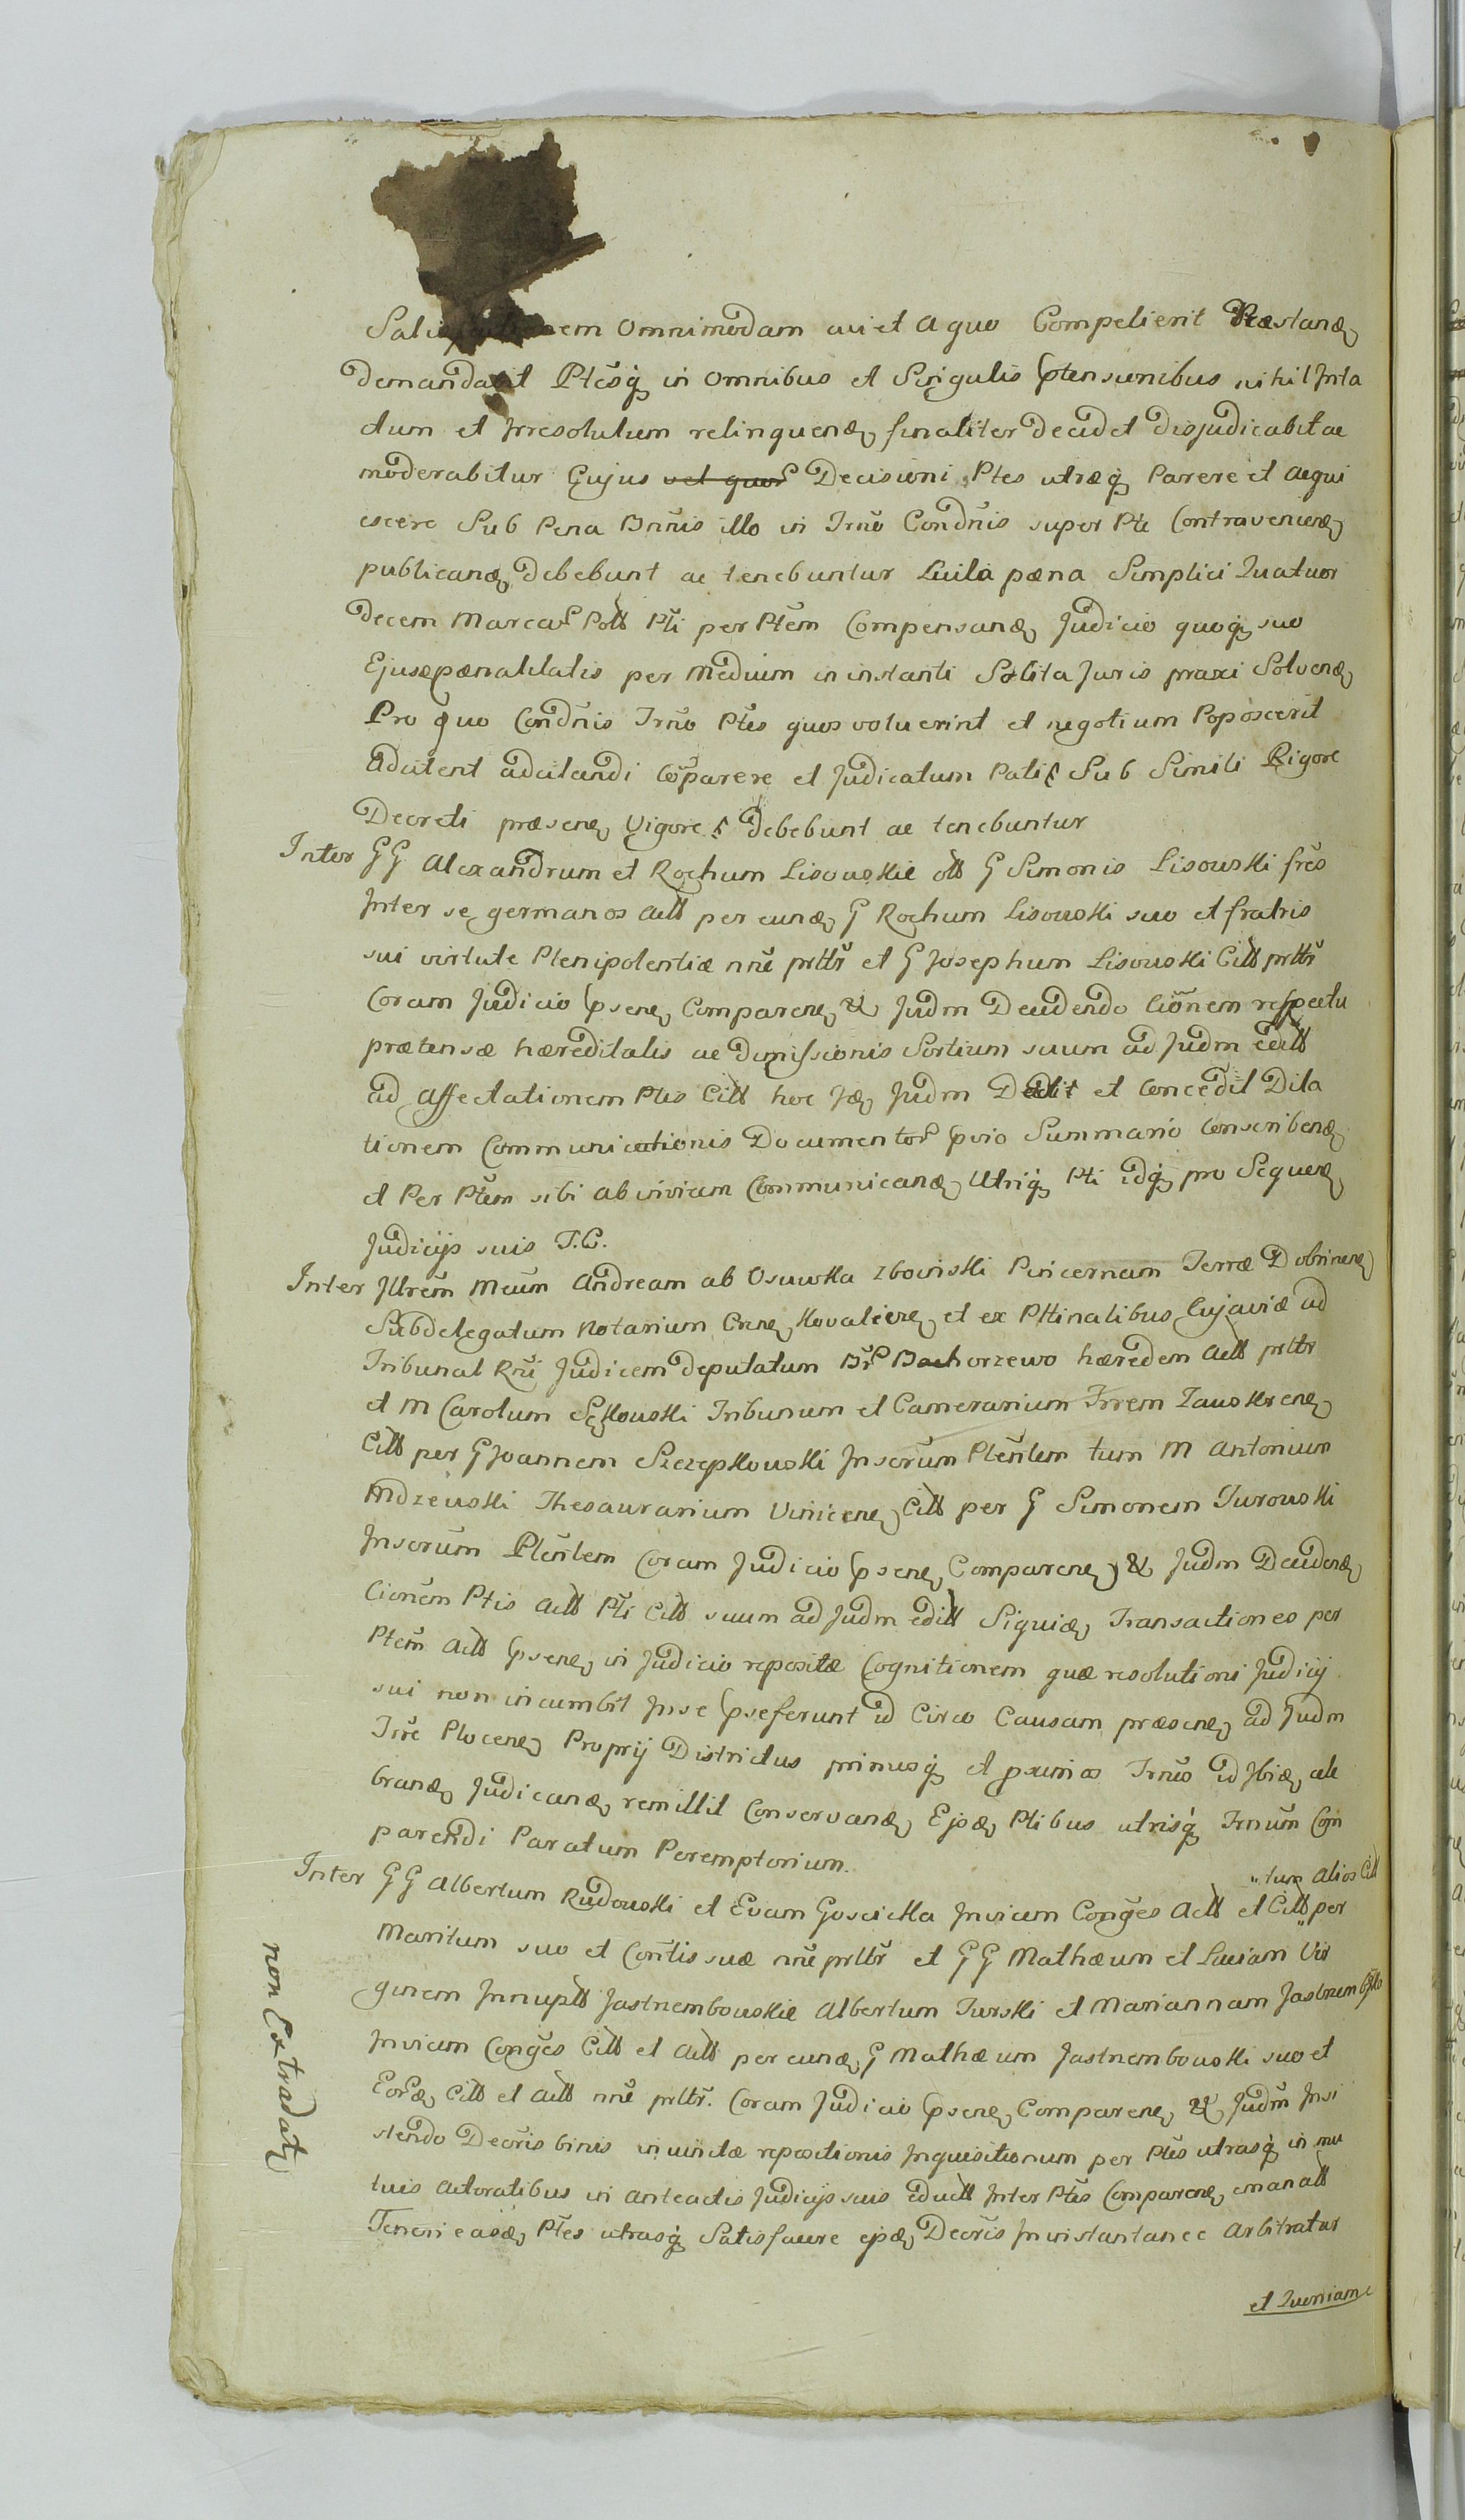 Omnimodam cui et a quo Competierit Præstanđ
demandabit Ptesq̨ in Omnibus et Singulis ptensionibus nihil Inta
ctum et Irresolutum relinquenđ finaliter decidet disjudicabit ac
moderabitur Cujus vel quor Decisioni Ptes utræq̨ Parere et acqui
escere Sub Pena Bñnis illo in Trño Condñis super Pte Contravenienđ
publicanđ debebunt ac tenebuntur Luita pæna Simplici Quatuor
decem Marcar Poll Pti per Ptem Compensanđ Judicio quoq̨ suo
Ejusdpænalitatis per Medium in instanti Solita Juris praxi Solvenđ
Pro quo Condñis Trño Ptes quos voluerint et negotium Poposcerit
Adcitent adcitandi Comparere et Judicatum Pati Sub Simili Rigore
Decreti præsenę Vigore debebunt ac tenebuntur
Inter GG Alexandrum et Rochum Lisowskie olł G Simonis Lisowski fres
Inter se germanos Actł per eunđ G Rochum Lisowski suo et fratris
sui virtute Plenipotentiæ nñe prltr̃ et G Josephum Lisowski Citł prltr̃
Coram Judicio psenę Comparenę & Judm Decidendo Cionem respectu
prætensæ hæreditatis ac dimissionis Sortium suum ad Judm edctł
ad Affectationem Ptis Citł hoc Jđ Judm Dedit et Concedit Dila
tionem Communicationis Documentor pvio Summario Conscribenđ
et Per Ptem sibi ab invicem Communicanđ Utriq̨ Pti idq̨ pro Sequenđ
Judicijs suis T.C.
Inter Illrem Mcum Andream ab Osuwka Zboinski Pincernam Terræ Dobrinenę
Subdelegatum Notarium Crenę Kovalienę et ex Pltinatibus Cujaviæ ad
Tribunal Rñi Judicem deputatum Br Bachorzewo hæredem Actł prltr
et M Carolum Sękowski Tribunum et Camerarium Trrem Zawskrenę
Citł per G Joannem Szczepkowski Inscrum Pleñtem tum M Antonium
Mdzewski Thesaurarium Vinicenę Citł per G Simonem Turowski
Inscrum Pleñtem Coram Judicio psenę Comparenę & Judm Decidenđ
Cionem Ptis Actł Pti Citł suum ad Judm edctł Siquiđ Transactiones per
Ptem Actł psenę in Judicio repositæ Cognitionem quæ resolutioni Judicij
sui non incumbit Inse pseferunt id Circo Causam præsenę ad Judm
Trre Plocenę Proprij Districtus primosq̨ et pximos Trños id Ibiđ cele
branđ Judicanđ remittit Conservanđ Ejsđ Ptibus utrisq̨ Trnum Com
parendi Paratum Peremptorium.
Inter GG Albertum Rudowski et Evam Goscicka Invicem Conges Actł et Citł per
tum alios Citł
Maritum suo et Contis suæ nñe prltr̃ et GG Mathæum et Luciam Vir
ginem Innuptł Jastrzembowskie Albertum Turski et Mariannam Jastrzembska
Invicem Conges Citł et Actł per eunđ G Mathæum Jastrzembowski suo et
Eorđ Citł et Actł nñe prltr̃. Coram Judicio psenę Comparenę & Judm Insi
stendo Decris binis injunctæ repositionis Inquisitionum per Ptes utrasq̨ in mu
tuis Actoratibus in anteactis Judicijs suis eductł Inter Ptes Comparenę emanatł
Teneri easđ Ptes utrasq̨ Satisfacere ejsđ Decris Ininstantanee Arbitratur
et Quoniam
non Extradatę